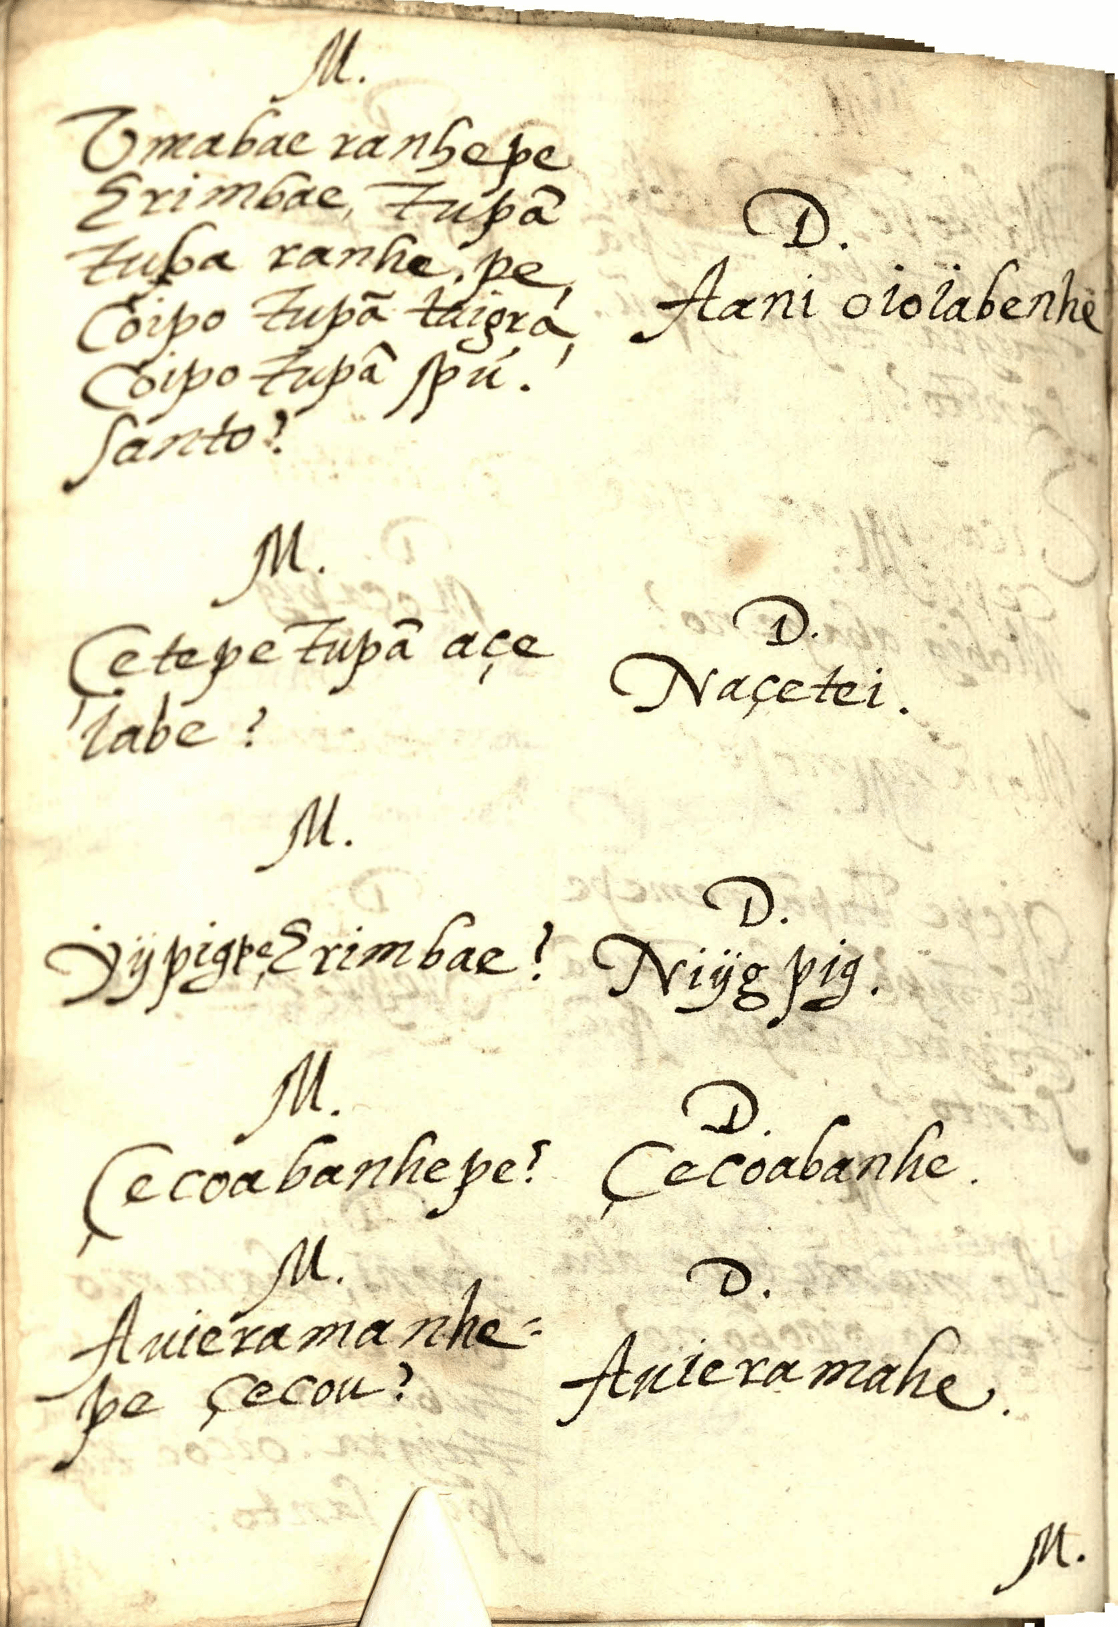 M.
Vmabae ranhepe
Erimbae, tupã
tuba ranhe, pe,
Coipo tupã taigra,
Coipo tupã spũ.
santo?
D.
Aani oioiabenhe
M.
Çetepe tupã açe
iabe?
D.
Naçetei.
M.
Yÿpigpe, Erimbae?
D.
Niÿgpig.
M.
Çecoabanhepe?
D.
Çecoabanhe.
M.
Auieramanhe=
pe çecou?
D.
Auieramahe.
M.